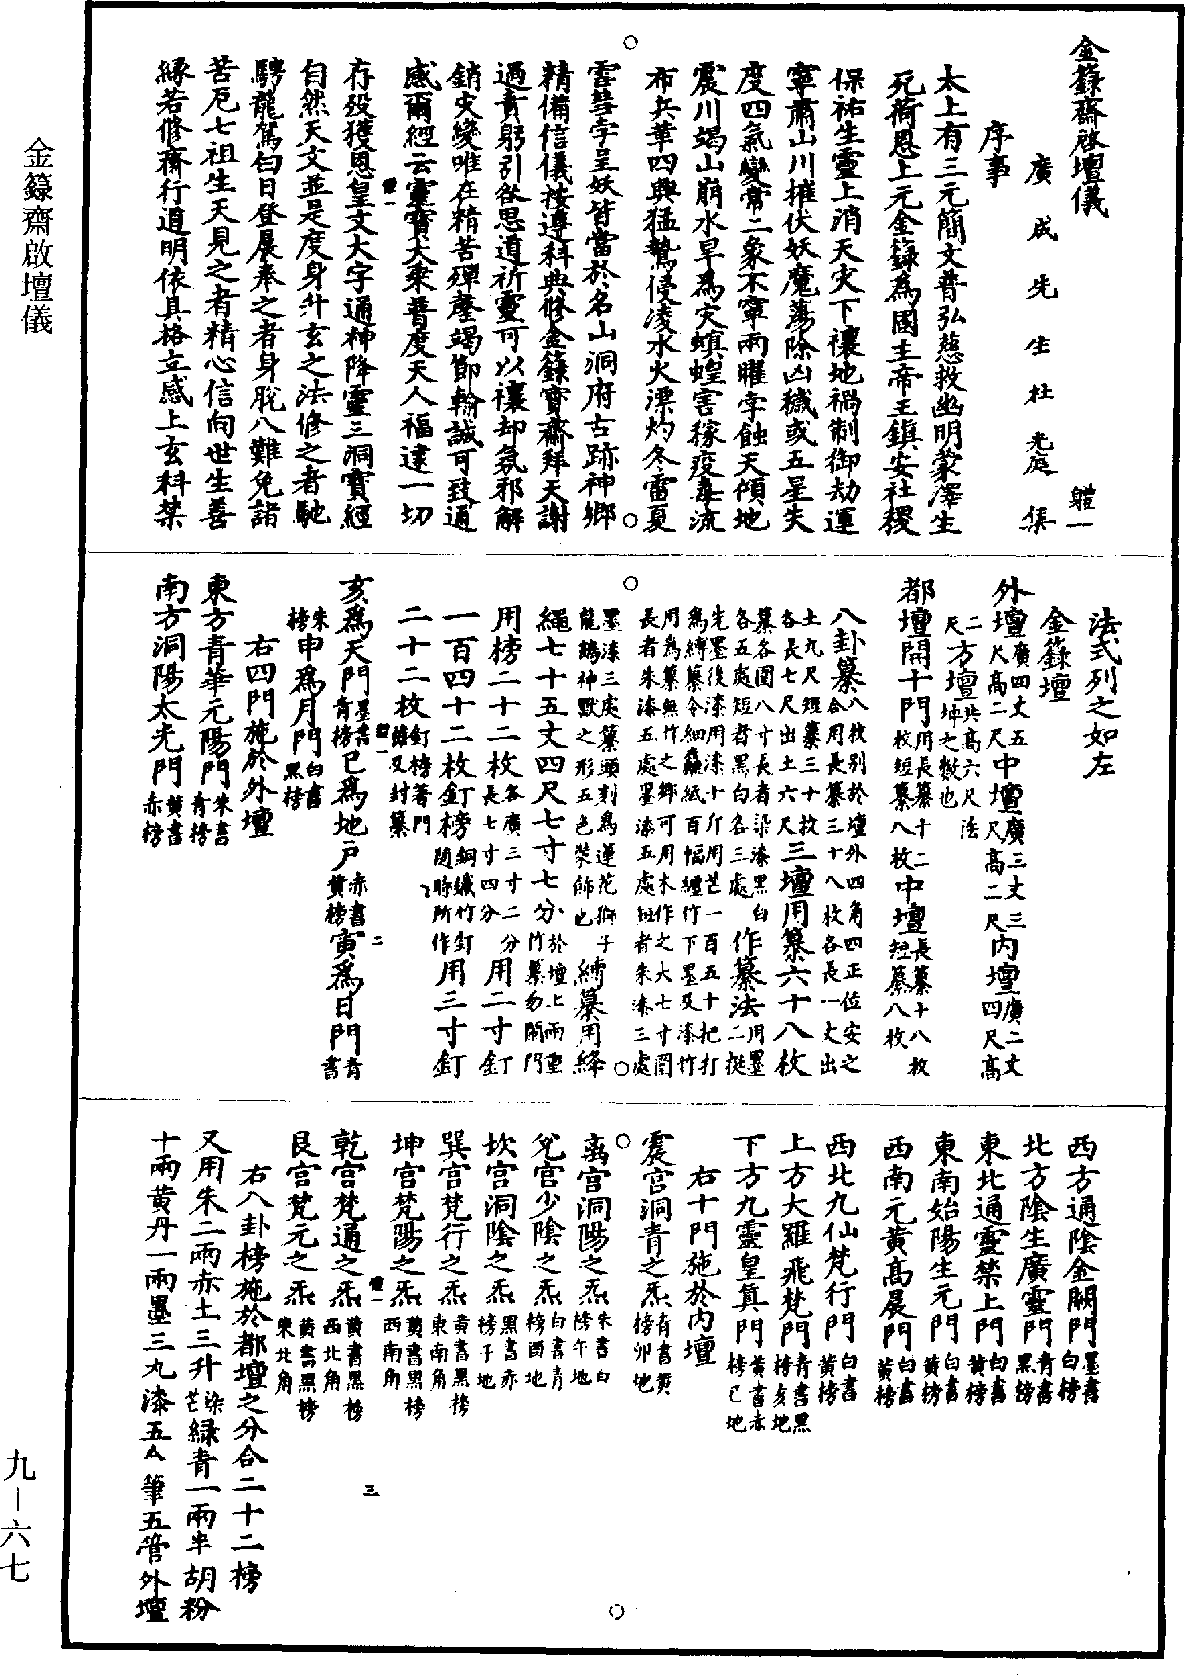 金籙齋啟壇儀
九—六七
金籙齋啓壇儀
體一
廣成先生杜光庭集
序事
太上有三元簡文普弘慈救幽明蒙澤生
死荷恩上元金籙為國主帝王鎮安社稷
保祐生靈上消天灾下禳地禍制御劫運
寧肅山川摧伏妖魔蕩除凶穢或五星失
度四氣變常二象不寧兩曜孛蝕天傾地
震川竭山崩水旱為灾蝗蝗害稼疫毒流
布兵革四興猛鷙侵凌水火漂灼冬雷夏
雪彗孛呈妖皆當於名山洞府古跡神鄉
精備信儀按遵科典修金籙寶齋拜天謝
過責躬引咎思道祈靈可以禳却氛邪解
銷灾變唯在精苦殫罄竭節輸誠可致通
感爾經云靈寶大乘普度天人福逮一切
存歿獲恩皇文大字通神降靈三洞寶經
自然天文並是度身升玄之法修之者馳
騁龍駕白日登晨奉之者身脫八難免諸
苦厄七祖生天見之者精心信向世生善
緣若修齋行道明依具格立感上玄科禁
法式列之如左
金籙壇
外壇廣四丈五尺高二尺中壇廣三丈三尺高二尺內壇廣二丈四尺高
二尺方壇共高六尺法坤之數也
都壇開十門用長纂十二枚短纂八枚中壇長纂十八枚短纂八枚
八卦纂八枚別於壇外四角四正位安之合用長纂三十八枚各長一丈出
土九尺短纂三十枚各長七尺出土六尺三壇用纂六十八枚
纂各圍八寸長者染漆黑白各五處短者黑白各三處作纂法用墨二挺
先墨後漆用漆十斤用芒一百五十把打為縛纂令細麤紙百幅纏竹下墨及漆竹
用為纂無竹之鄉可用木作之大七寸圍長者朱漆五處墨漆五處短者朱漆三處
墨漆三處纂頭刻為蓮花獅子龍鶴神獸之形五色裝飾也縛纂用絳
繩七十五丈四尺七寸七分於壇上兩重竹纂勿闕門
用榜二十二枚各廣三寸二分長七寸四分用二寸釘
一百四十二枚釘榜銅鐵竹釘隨時所作用三寸釘
二十二枚釘榜著門纂及封纂
亥為天門墨書青榜巳為地戶赤書黃榜寅為日門青書
朱榜申為月門白書黑榜
右四門施於外壇
東方青華元陽門朱書青榜
南方洞陽太光門黃書赤榜
西方通陰金闕門墨書白榜
北方陰生廣靈門青書黑榜
東北通靈禁上門白書黃榜
東南始陽生元門白書黃榜
西南元黃高晨門白書黃榜
西北九仙梵行門白書黃榜
上方大羅飛梵門青書黑榜亥地
下方九靈皇真門黃書赤榜巳地
右十門施於內壇
震宮洞青之炁青書黃榜卯地
離宮洞陽之炁朱書白榜午地
兌宮少陰之炁白書青榜酉地
坎宮洞陰之炁黑書赤榜子地
巽宮梵行之炁黃書黑榜東南角
坤宮梵陽之炁黃書黑榜西南角
乾宮梵通之炁黃書黑榜西北角
艮宮梵元之炁黃書黑榜東北角
右八卦榜施於都壇之分合二十二榜
又用朱二兩赤土三升染芒緑青一兩半胡粉
十兩黃丹一兩墨三丸漆五 筆五管外壇